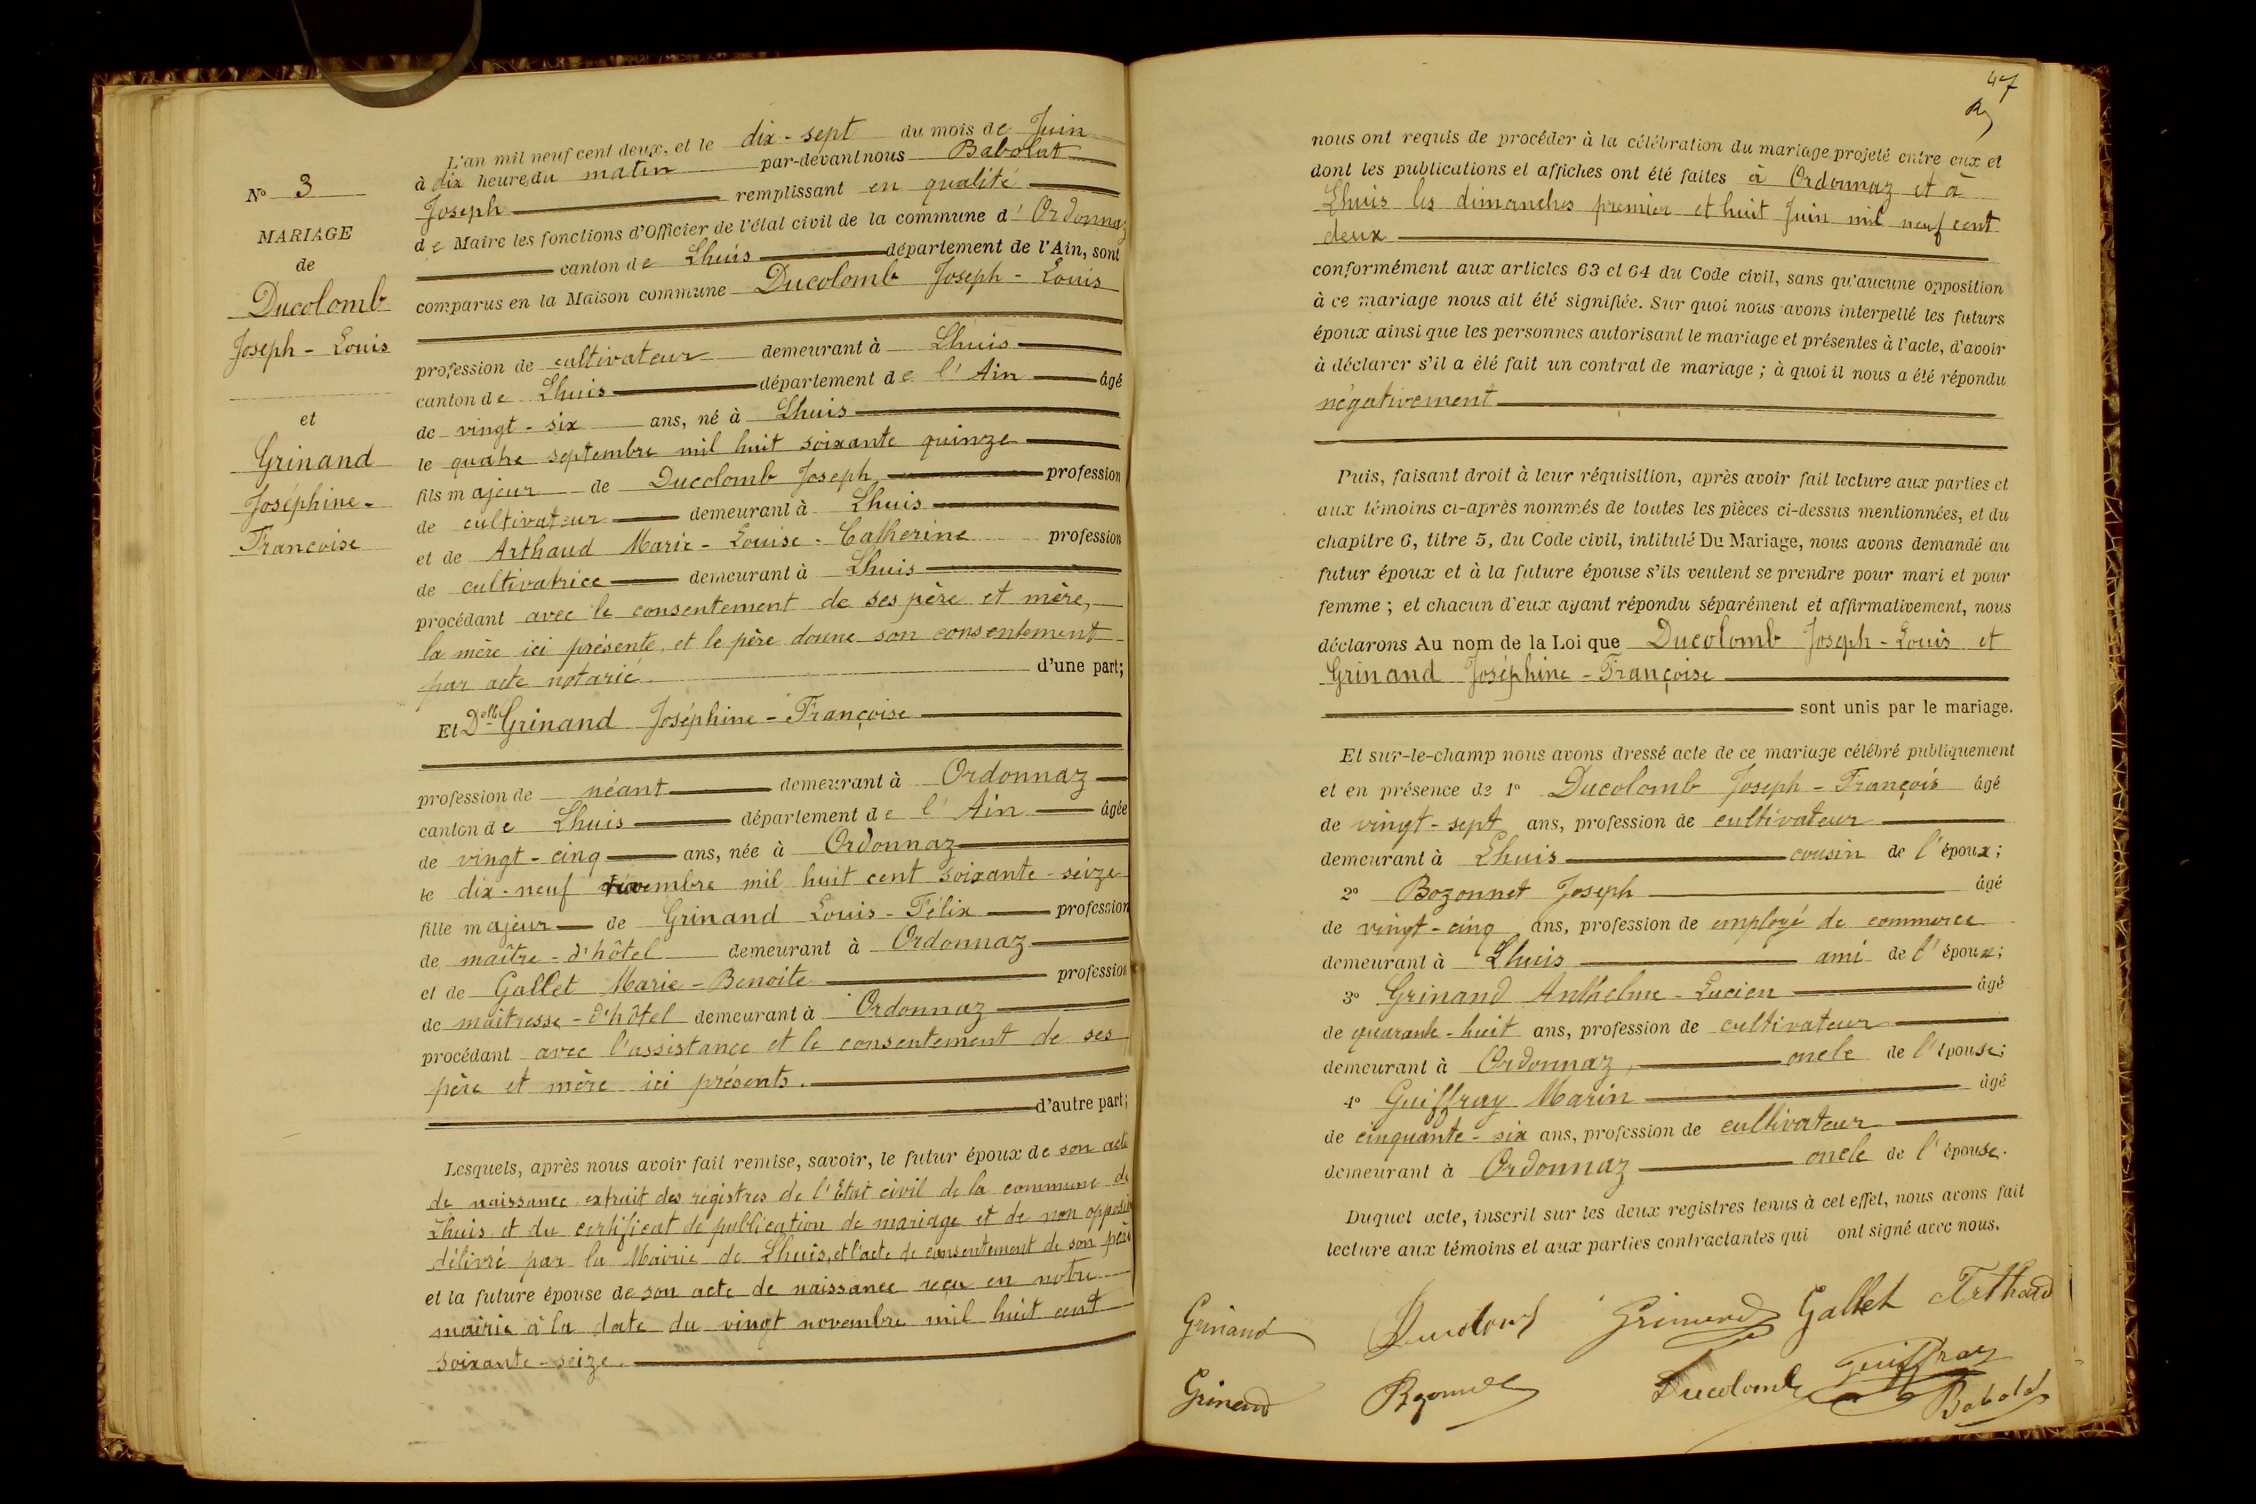 N° 3
MARIAGE
de
Ducolomb
Joseph - Louis
et
Grinand
Joséphine -
Francoise
L'an mil neuf cent deux, et le dix - sept du mois de Juin
à dix heure du matin par-devant nous Babolat
Joseph remplissant en qualité
de Maire les fonctions d'Officier de l'état civil de la commune d' Ordonnaz
canton de Lhuis département de l'Ain, sont
comparus en la Maison commune Ducolomb Joseph - Louis
profession de cultivateur demeurant à Lhuis
canton de Lhuis département de l' Ain âgé
de vingt - six ans, né à Lhuis
le quatre septembre mil huit soixante quinze
fils majeur de Ducolomb Joseph profession
de cultivateur demeurant à Lhuis
et de Arthaud Marie - Louise - Catherine profession
de cultivatrice demeurant à Lhuis
procédant avec le consentement de ses père et mère,
la mère ici présente, et le père donne son consentement
par acte notarié d'une part;
Et Dlle Grinand Joséphine - Françoise
profession de néant demeurant à Ordonnaz
canton de Lhuis département de l' Ain âgée
de vingt - cinq ans, née à Ordonnaz
le dix - neuf novembre mil huit cent soixante - seize
fille majeur de Grinand Louis - Félix profession
de maître - d'hôtel demeurant à Ordonnaz
et de Gallet Marie - Benoite profession
de maitresse - d'hôtel demeurant à Ordonnaz
procédant avec l'assistance et le consentement de ses
père et mère ici présents.
d'autre part;
Lesquels, après nous avoir fait remise, savoir, le futur époux de son acte
de naissance extrait des registres de l'Etat civil de la commune de
Lhuis et du certificat de publication de mariage et de non opposi
délivré par la Mairie de Lhuis, et l'acte de consentement de son père
et la future épouse de son acte de naissance reçu en notre
mairie à la date du vingt novembre mil huit cent
soixante - seize.
47
nous ont requis de procéder à la célébration du mariage projeté entre eux et
dont les publications et affiches ont été faites à Ordonnaz et à
Lhuis les dimanches premier et huit Juin mil neuf cent
deux
conformément aux articles 63 et 64 du Code civil, sans qu'aucune opposition
à ce mariage nous ait été signifiée. Sur quoi nous avons interpellé les futurs
époux ainsi que les personnes autorisant le mariage et présentes à l'acte, d'avoir
à déclarer s'il a été fait un contrat de mariage ; à quoi il nous a été répondu
négativement
Puis, faisant droit à leur réquisition, après avoir fait lecture aux parties et
aux témoins ci-après nommés de toutes les pièces ci-dessus mentionnées, et du
chapitre 6, titre 5, du Code civil, intitulé Du Mariage, nous avons demandé au
futur époux et à la future épouse s'ils veulent se prendre pour mari et pour
femme ; et chacun d'eux ayant répondu séparément et affirmativement, nous
déclarons Au nom de la Loi que Ducolomb Joseph - Louis et
Grinand Joséphine - Françoise
sont unis par le mariage.
Et sur-le-champ nous avons dressé acte de ce mariage célébré publiquement
et en présence de 1° Ducolomb Joseph - François âgé
de vingt - sept ans, profession de cultivateur
demeurant à Lhuis cousin de l'époux;
2° Bozonnet Joseph âgé
de vingt - cinq ans, profession de employé de commerce
demeurant à Lhuis ami de l'époux;
3° Grinand Anthelme - Lucien âgé
de quarante - huit ans, profession de cultivateur
demeurant à Ordonnaz, oncle de l'épouse;
4° Guiffray Marin âgé
de cinquante - six ans, profession de cultivateur
demeurant à Ordonnaz oncle de l'épouse.
Duquel acte, inscrit sur les deux registres tenus à cet effet, nous avons fait
lecture aux témoins et aux parties contractantes qui ont signé avec nous.
Grinand Ducolomb Grinand Gallet Arthaud
Grinand Bozonnet Ducolomb Guiffray
Babolat